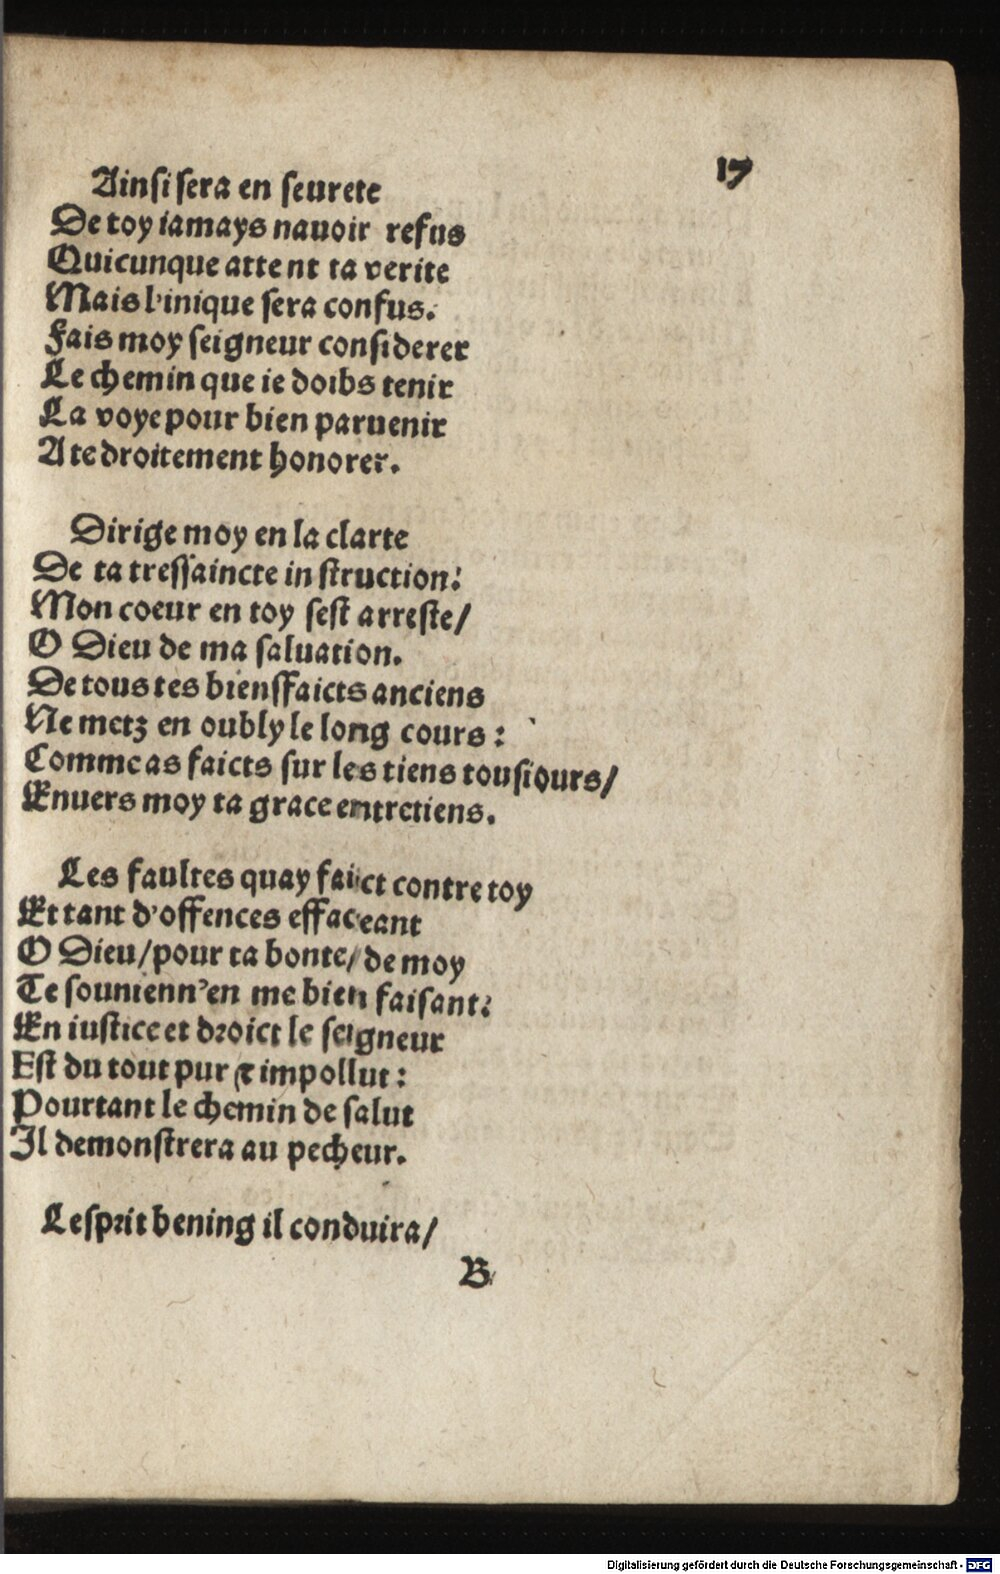 17
Ainsi sera en seurete
De toy iamays nauoir refus
Quicunque attent ta verite
Mais l'inique sera confus.
Fais moy seigneur considerer
Le chemin que ie doibs tenir
La voye pour bien paruenir
A te droitement honorer.
Dirige moy en la clarte
De ta tressaincte instruction:
Mon coeur en toy sest arreste/
O Dieu de ma saluation.
De tous tes biensfaicts anciens
Ne metz en oubly le long cours:
Comme as faicts sur les tiens tousiours/
Enuers moy ta grace entretiens.
Les faultes quay faict contre toy
Et tant d'offences effaceant
O Dieu/pour ta bonte/de moy
Te souuienn'en me bien faisant:
En iustice et droict le seigneur
Est du tout pur & impollut:
Pourtant le chemin de salut
Il demonstrera au pecheur.
Lesprit bening il conduira/
B
Digitalisierung gefördert durch die Deutsche Forschungsgemeinschaft - DFG